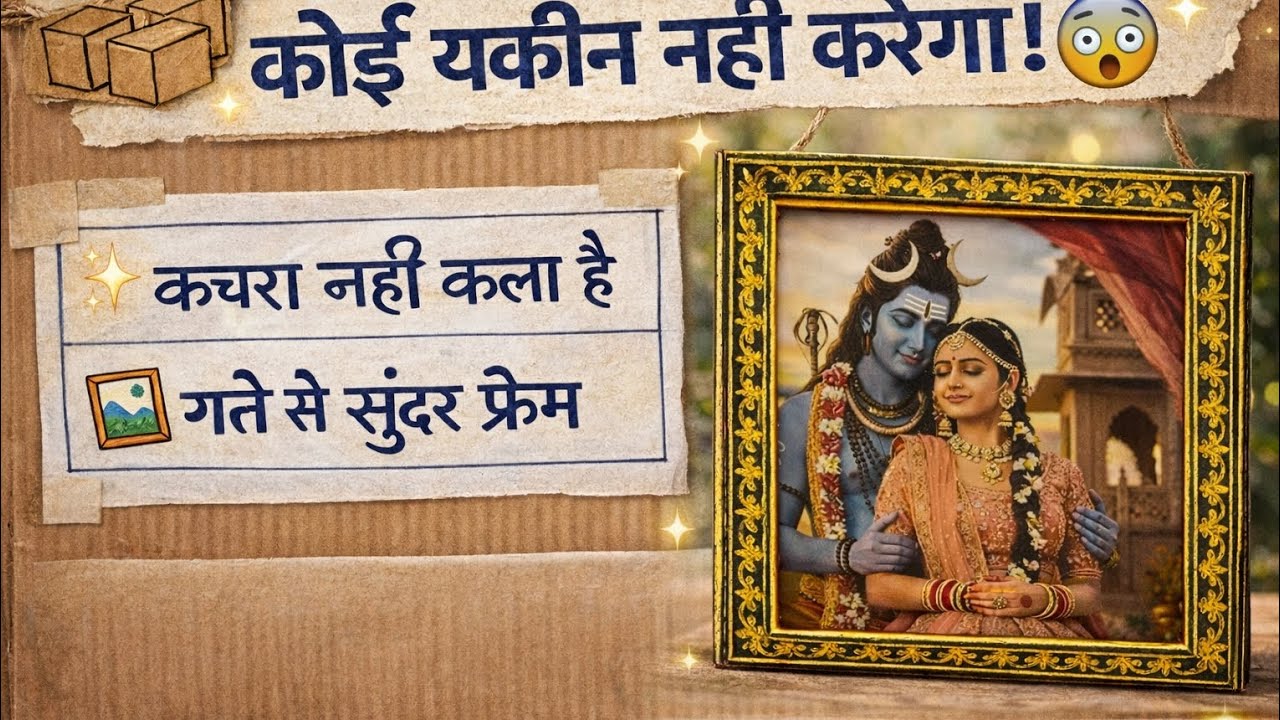 कोई यकीन नही करेगा!
कचरा नही कला है
गते से सुंदर फ्रेम